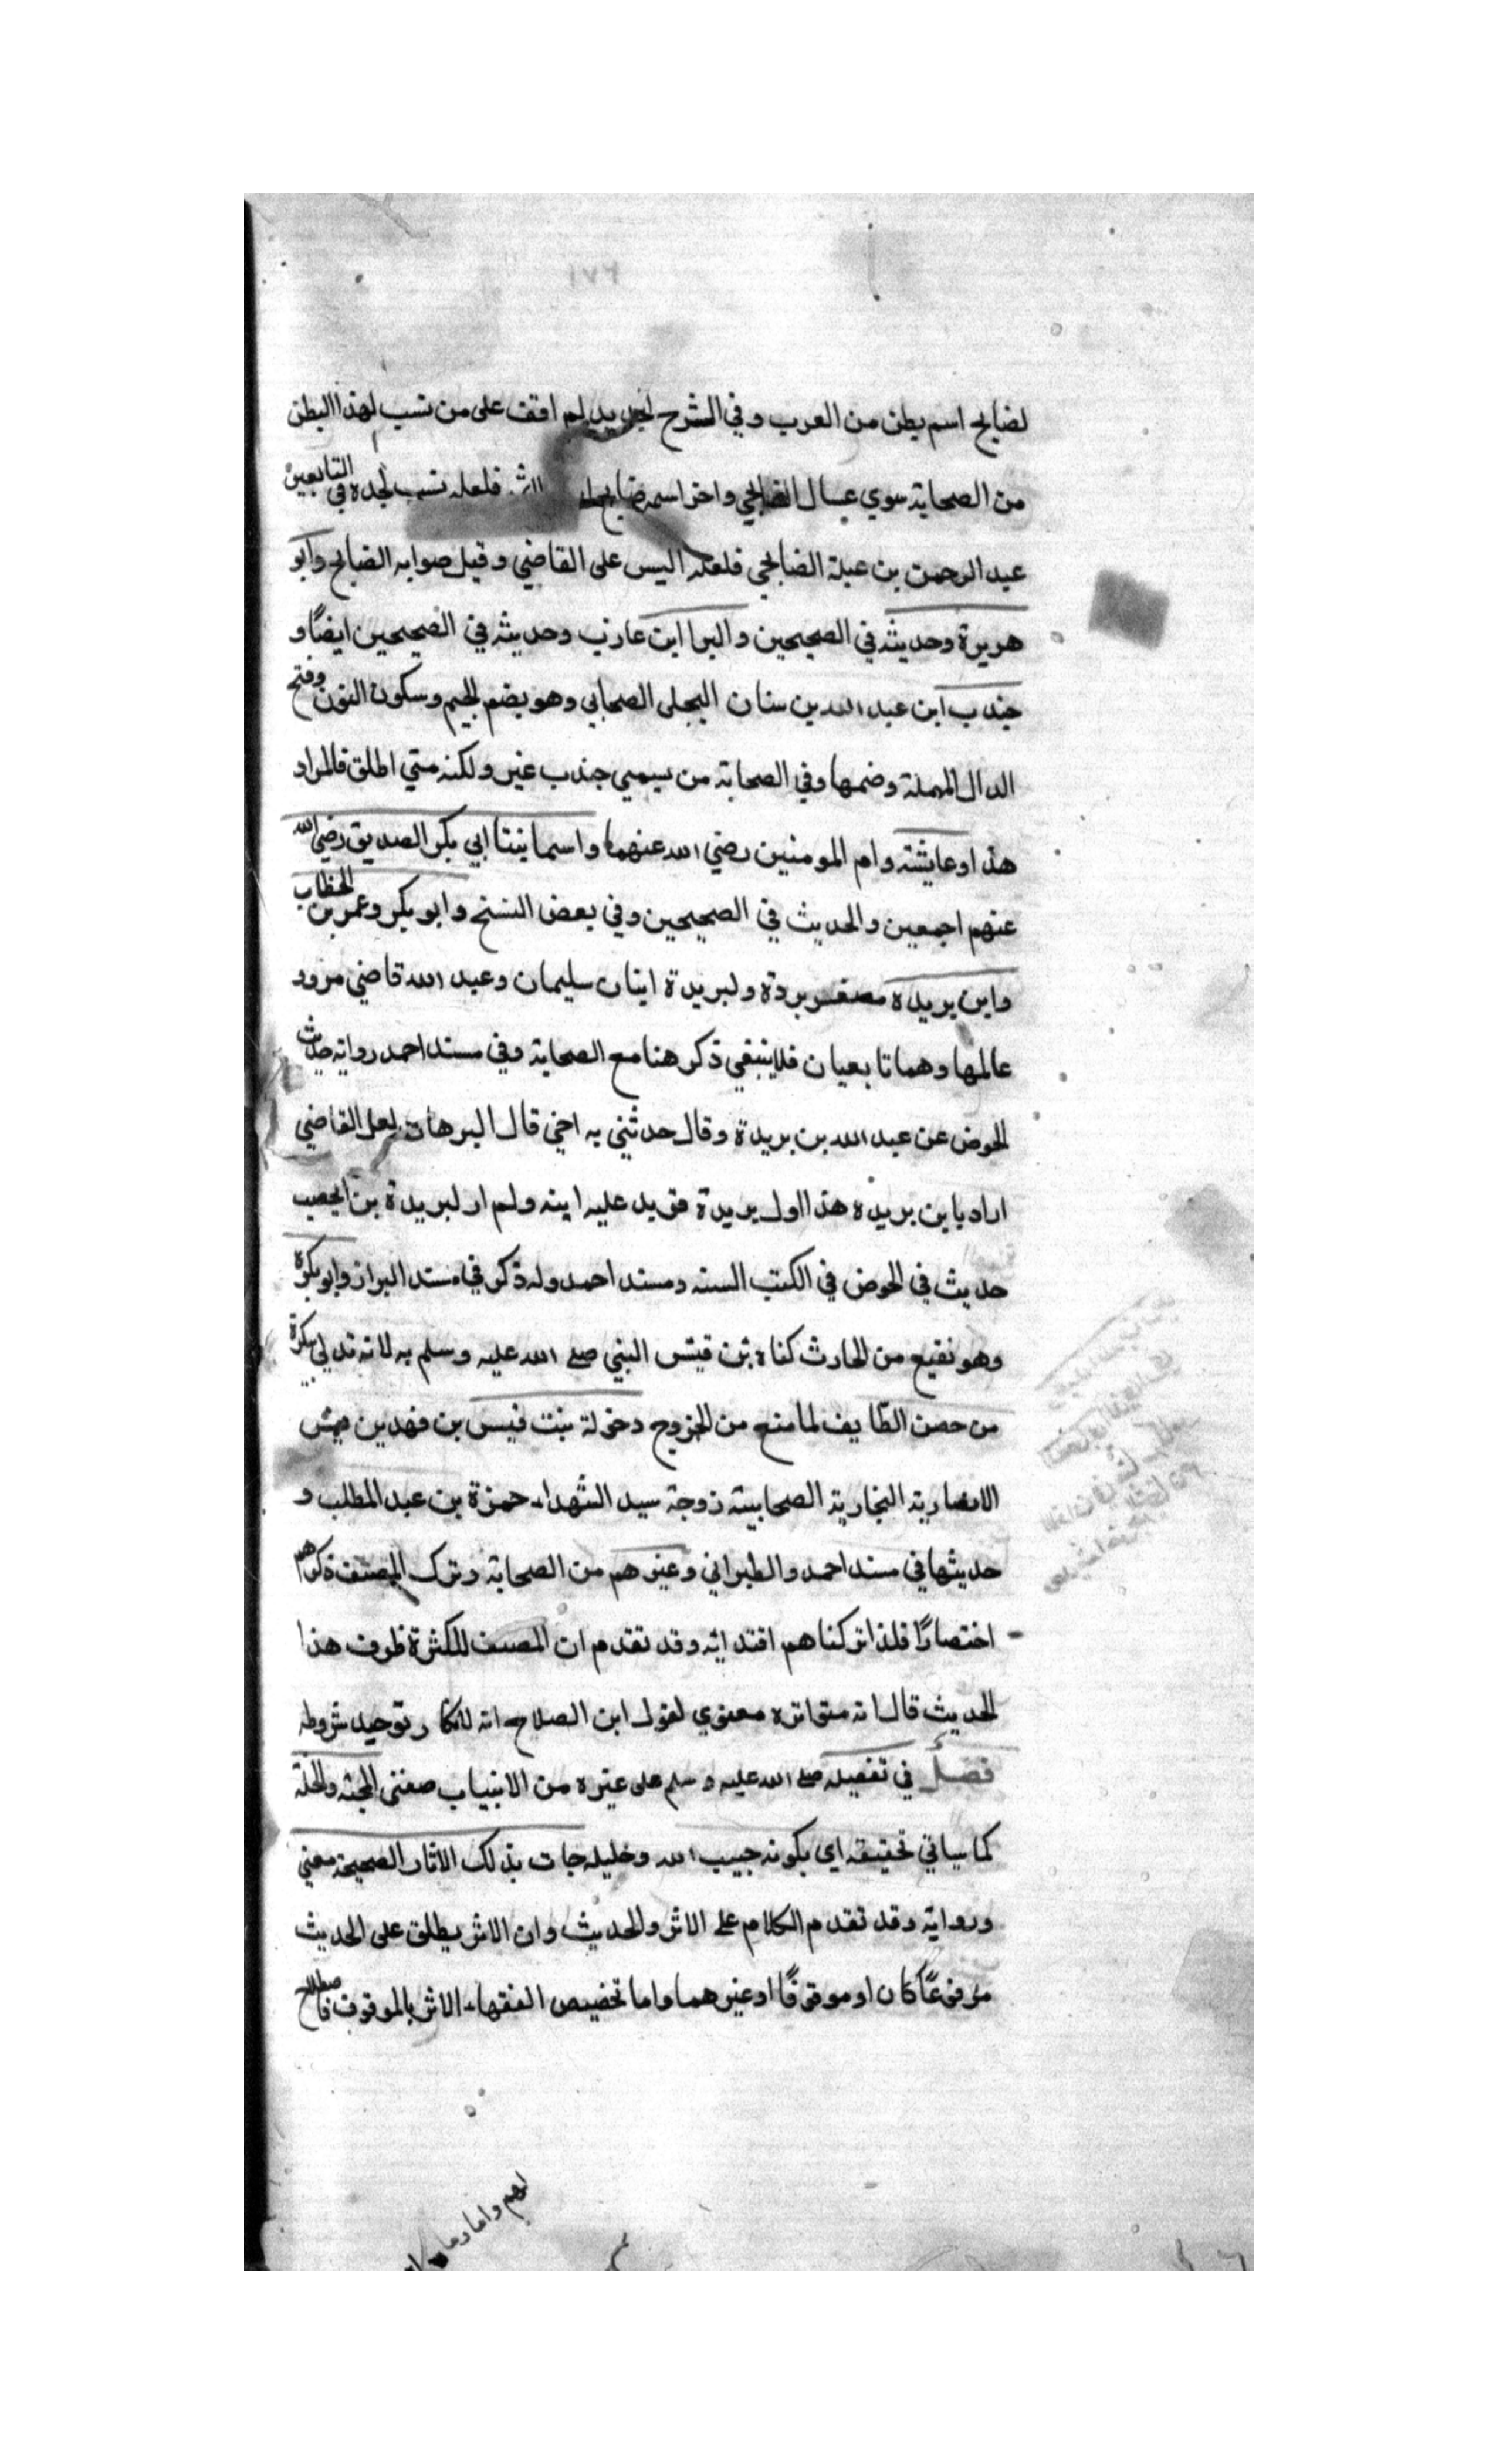 لضابح اسم بطن من العرب وفي الشرح الجديد لم اقف على من نسب لهذا البطن
من الصحابة سوي عسال الضابحي واخر اسمه ضابح فلعله نسب لجده في التابعين
عبد الرحمن بن عبلة الضابحي فلعله اليس على القاضي وقيل صوابه الضابح وابو
هريرة وحديثه في الصحيحين والبرا ابن عازب وحديثه في الصحيحين ايضًا و
جندب ابن عبد الله بن سنان البجلى الصحابي وهو بضم الجيم وسكون النون وفتح
الدال المهملة وضمها وفي الصحابة من يسمي جندب غير ولكنه متي اطلق فالمراد
هذا وعايشة وام المومنين رضي الله عنهما واسما بنتا ابي بكر الصديق رضي الله
عنهم اجمعين والحديث في الصحيحين وفي بعض النسخ وابو بكر وعمر بن الخطاب
وابن بريده مصغر بردة ولبريدة ابنان سليمان وعبد الله قاضي مرور
عالمها وهما تابعيان فلا ينبغي ذكر هنا مع الصحابة وفي مسند احمد رواية حديث
الحوض عن عبد الله بن بريدة وقال حدثني به اخي قال البرهان لعل القاضي
اراد يا بن بريده هذا اول بريدة فزيد عليه ابنه ولم ار لبريدة بن الحصيب
حديث في الحوض في الكتب السته ومسند احمد وله ذكر في مسند البزاز وابو بكرة
وهو نفيع من الحارث كناه بن قيتس النبي صلى الله عليه وسلم به لانه تدلي ببكرة
من حصن الطايف لما منع من الخروج وخولة بنت قيس بن فهد بن قيس
الانصارية النجارية الصحابية زوجة سيد الشهداء حمزة بن عبد المطلب و
حديثها في مسند احمد والطبراني وغيرهم من الصحابة وترك المصنف ذكرهم
اختصارًا فلذا تركناهم اقتدائه وقد تقدم ان المصنف للكثرة طرف هذا
الحديث قال انه متواتره معنوي لقول ابن الصلاح انه لا يكاد توجد شروطه
فصل في تفضيله صلى الله عليه وسلم على غيره من الانبياب صفتى المحبة والخلة
كما سياتي تحقيقه اي بكونه حبيب الله وخليله جات بذلك الاثار الصحيحة معني
ورواية وقد تقدم الكلام على الاثر والحديث وان الاثر يطلق على الحديث
مرفوعًا كان او موقوفًا او غيرهما واما تخصيص الفقهاء الاثر بالموقوف فاصطلاح
لهم واما